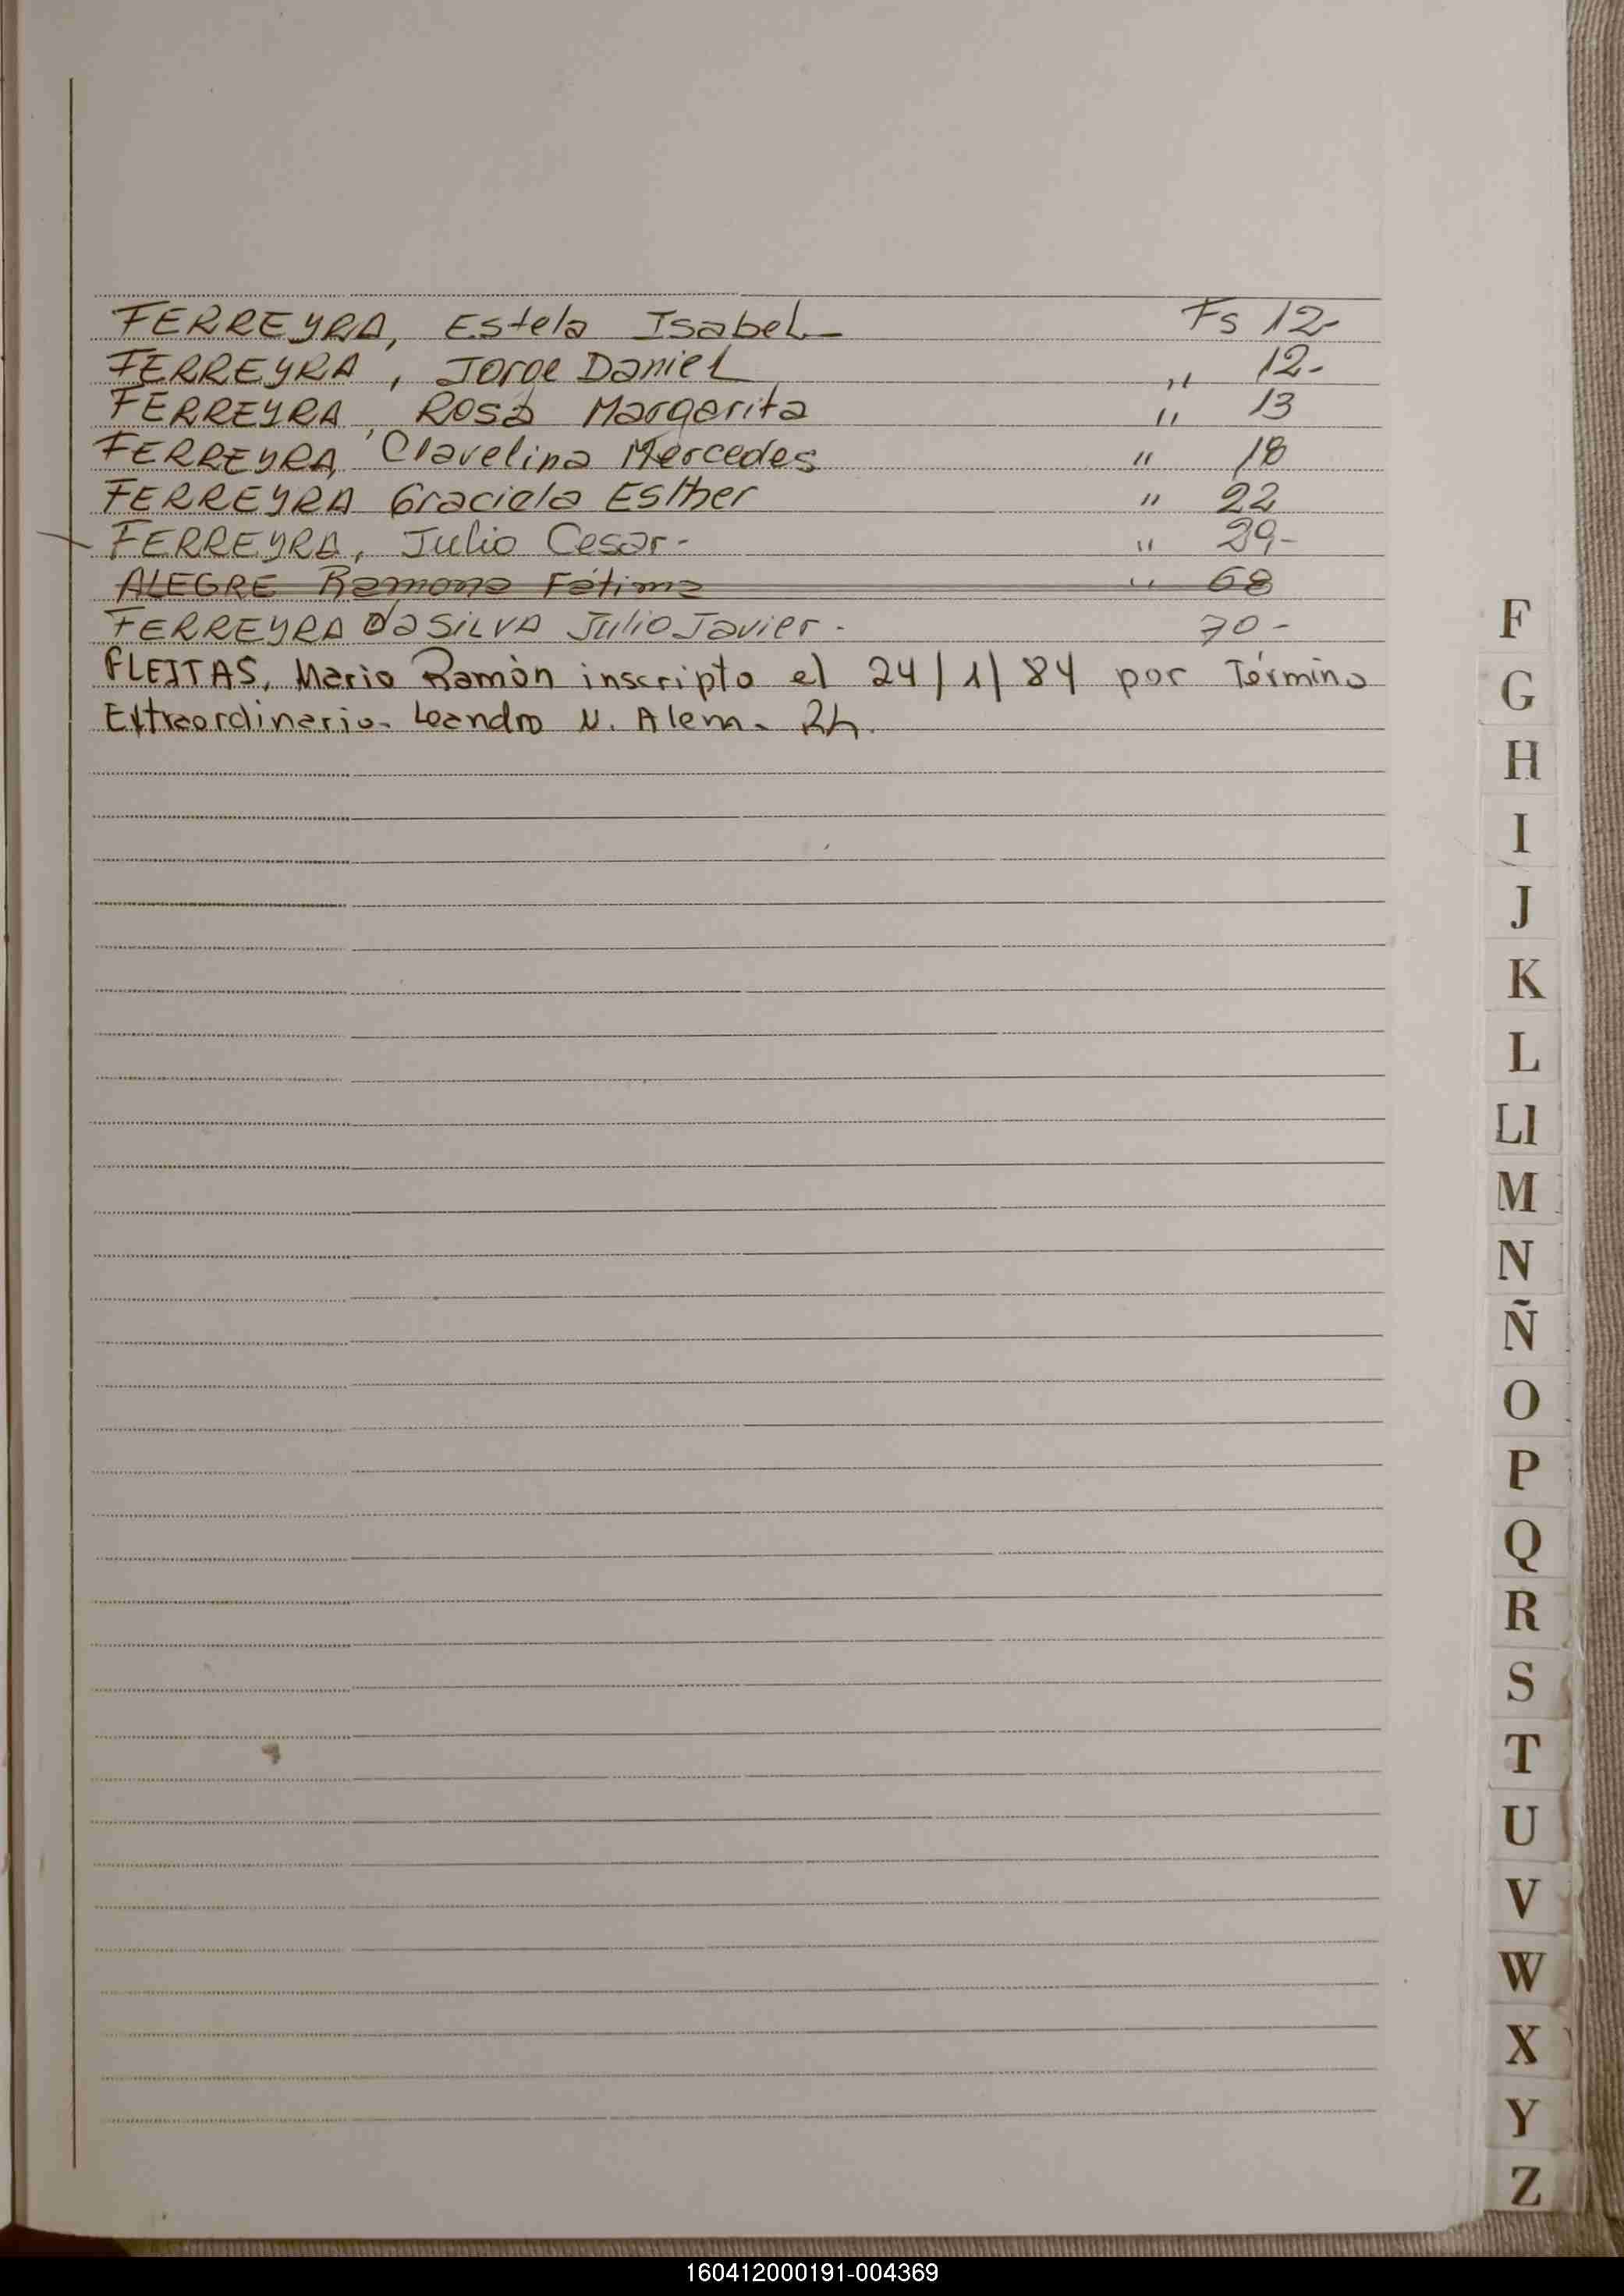 FERREYRA, Estela Isabel- Fs 12-
FERREYRA, Jorge Daniel " 12-
FERREYRA, Rosa Margarita " 13
FERREYRA Clavelina Mercedes " 18
FERREYRA Graciela Esther " 22
FERREYRA, Julio Cesar- " 29-
ALEGRE Ramona Fátima " 68
FERREYRA Da SILVA Julio Javier- 70-
FLEITAS, Mario Ramòn inscripto el 24/1/84 por Término
Extraordinario- Leandro N. Alem-
F
G
H
I
J
K
L
Ll
M
N
Ñ
O
P
Q
R
S
T
U
V
W
X
Y
Z
160412000191-004369